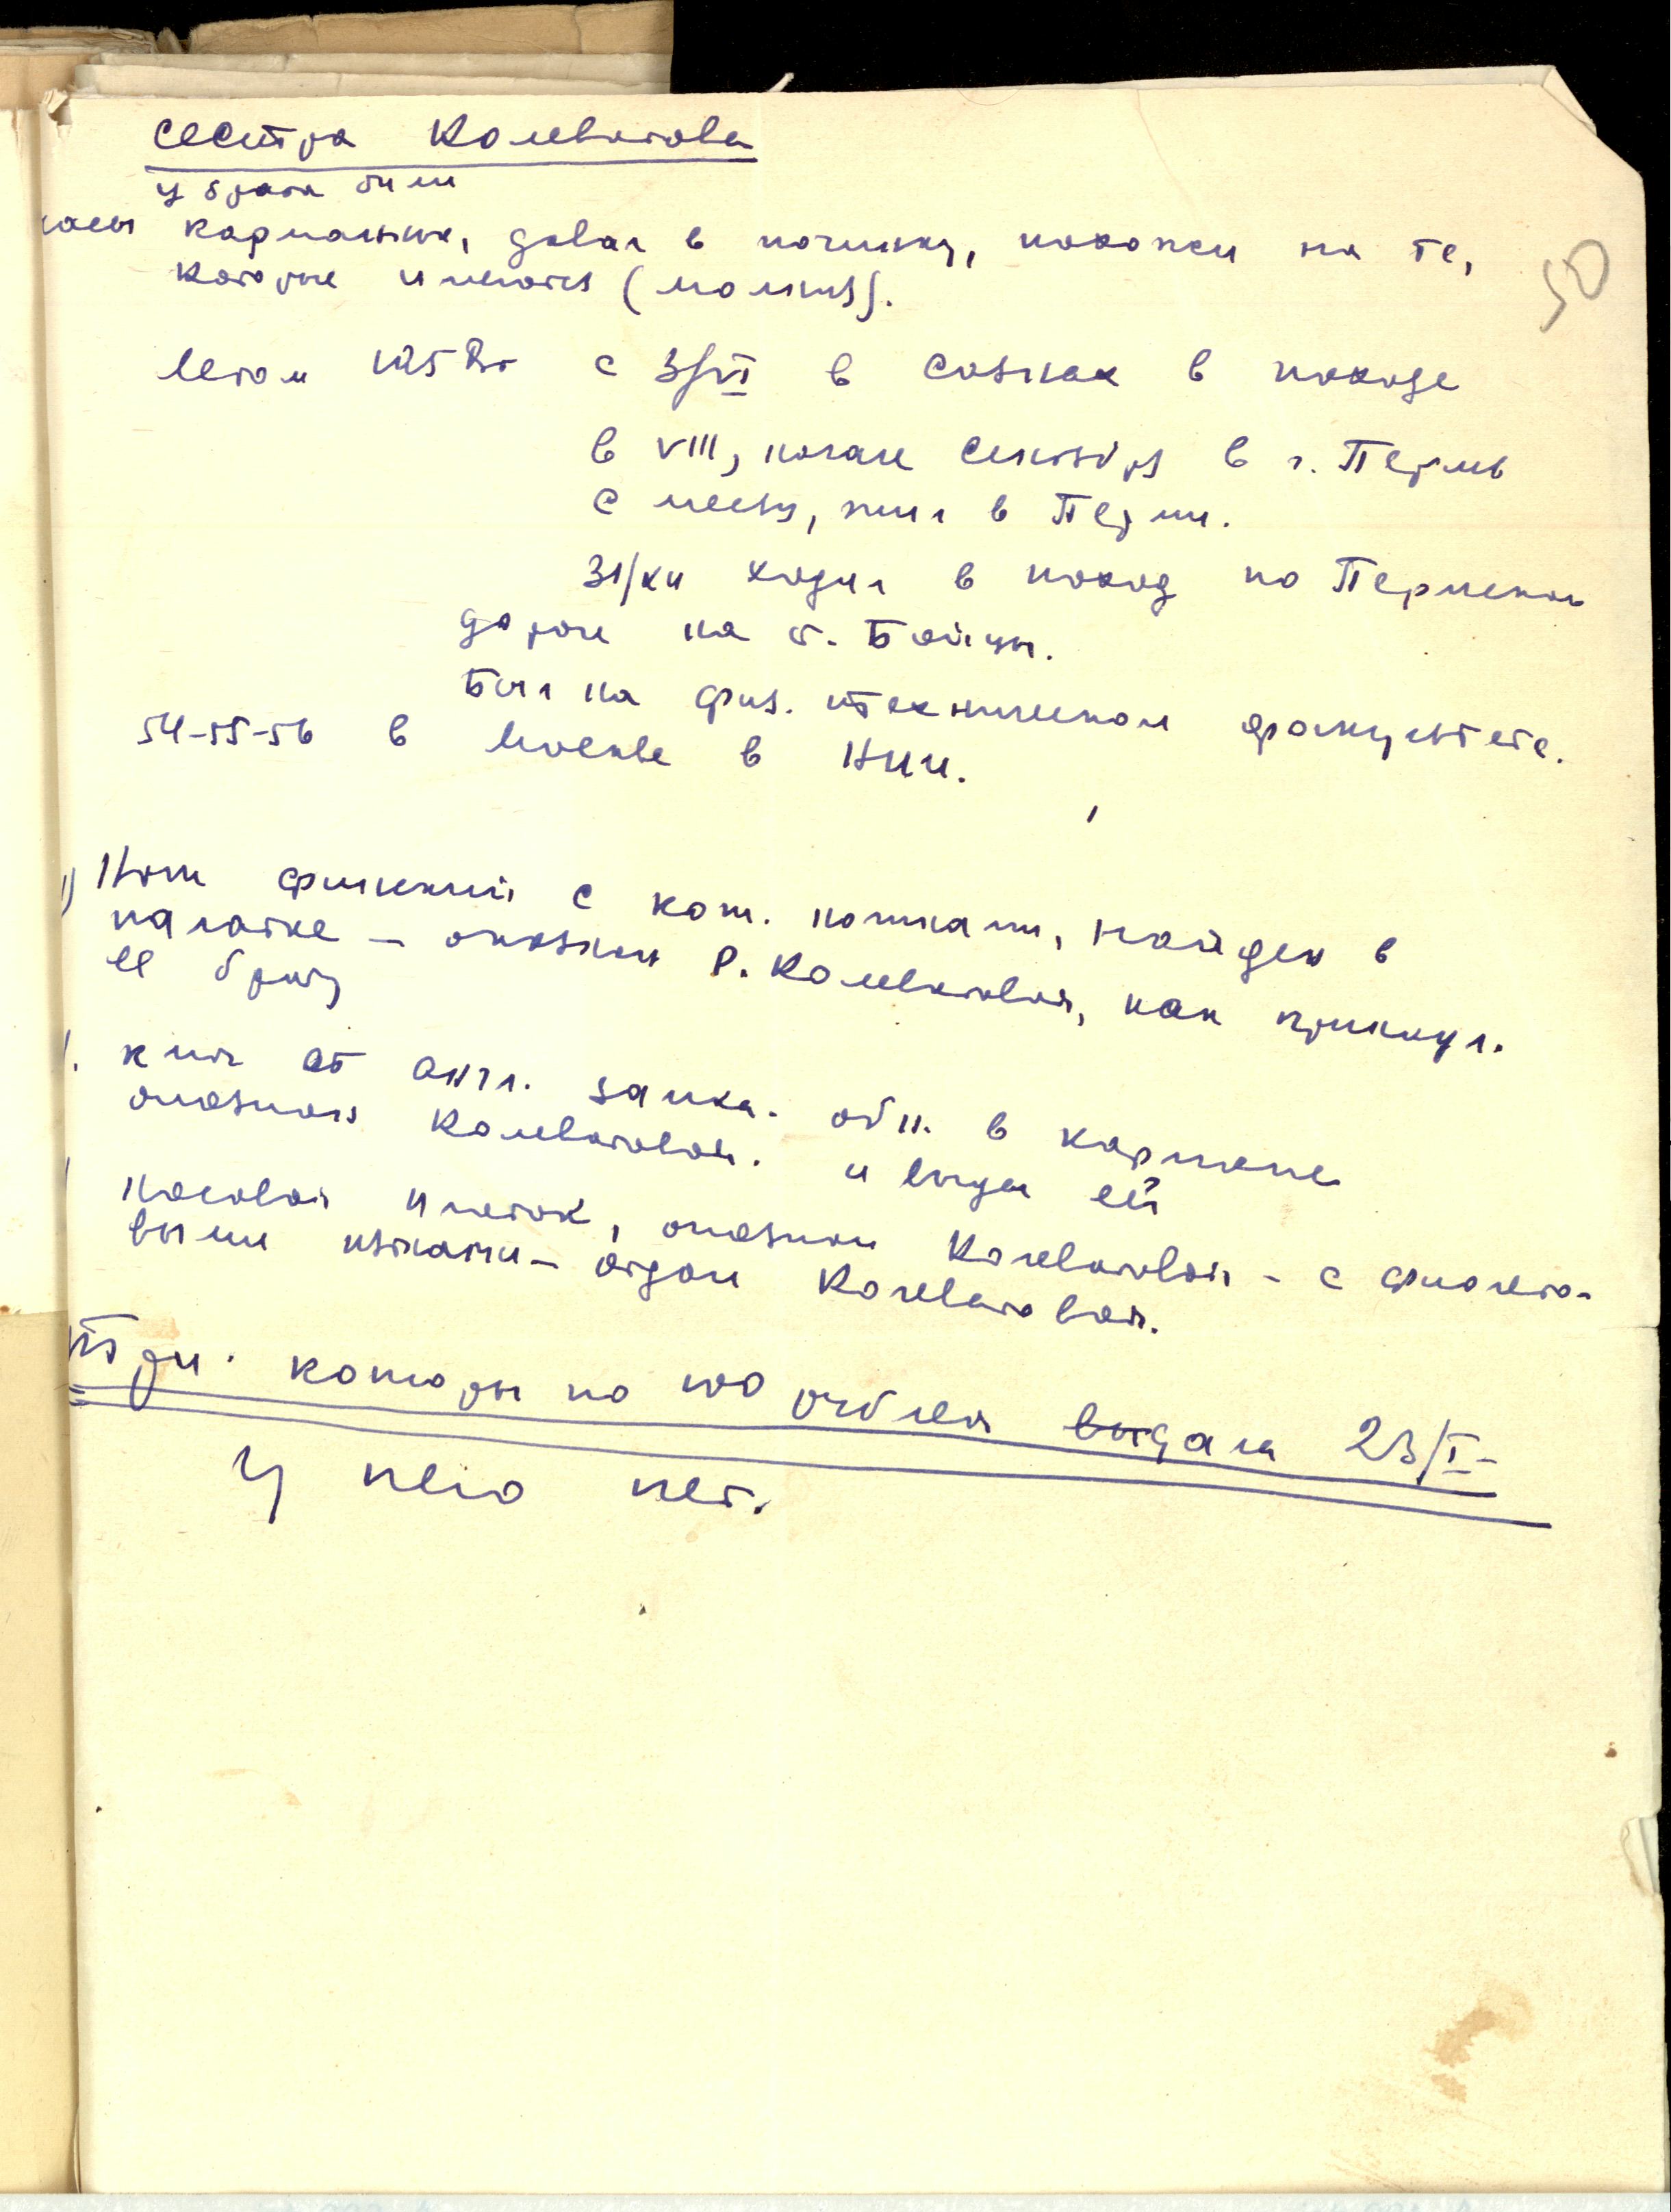 сестра Колеватова
у брата были
часы карманные, давал в починку, похожи на те,
которые имеются (
50
Летом 1958г с 3/VI в Саянах в походе
в VIII, начале сентября в г. Пермь
с жил в Перми.
31/XII ходил в поход по Пермской
дороге на ст. Бойцы.
Был на физ. техническом факультете.
54-55-56 в Москве в НИИ.
1) Нож финский с кож. ножнами, найден в
палатке – опознан Р. Колеватовой, как принадл.
ее брату
ключ от англ. замка. обн. в кармане
опознан Колеватовой. и выдан ей
носовой платок, опознан Колеватовой - с фиолето-
выми – отдан Колеватовой.
Три. которы по 100 рублей выдала 23/I-
У него нет.